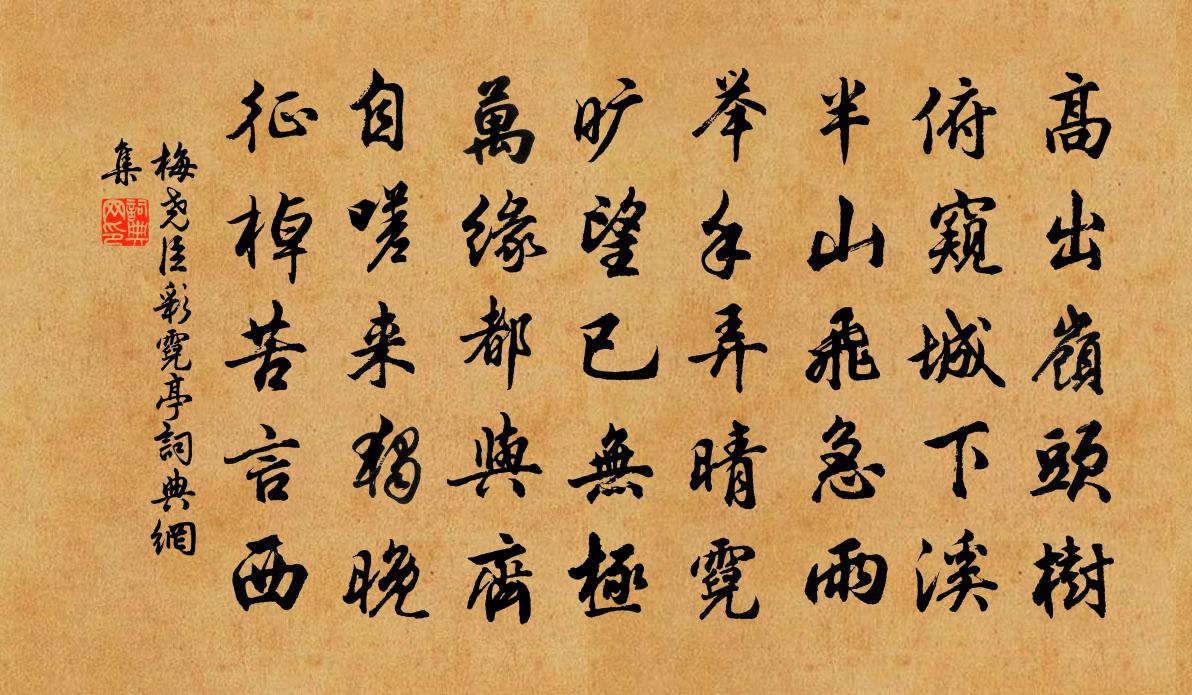 高出嶺頭樹
俯窺城下溪
半山飛急雨
举手弄晴霓
旷望已無極
萬緣都與齊
自嗟来獨晚
征棹苦言西
梅尧臣彩霓亭詞典網
集
詞典网印